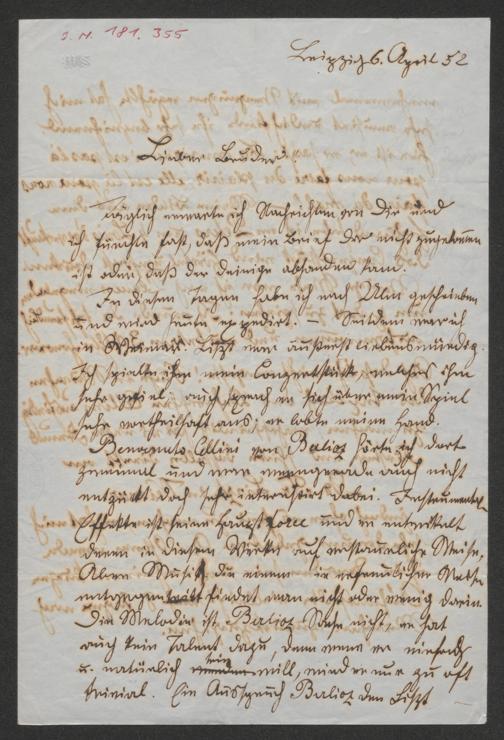 J. N. 181.355
Leipzig 6. April 52
Lieber Bruder.
Täglich erwarte ich Nachrichten von Dir und
ich fürchte fast, daß mein Brief Dir nicht zugekommen
ist oder daß der Deinige abhanden kam.
In diesen Tagen habe ich nach Ulm geschrieben
und wird heute expedirt. – Seitdem war ich
in Weimar. Liszt war äußerst liebenswürdig.
Ich spielte ihm mein Conzertstück, welches ihm
sehr gefiel, auch sprach er sich über mein Spiel
sehr vortheilhaft aus, er lobte meine Hand.
Benvenuto Cellini von Berlioz hörte ich dort
zweimal und war wenngerade auch nicht
entzückt doch sehr interessirt dabei. Instrumental-
Effekte ist seine Hauptforce und er entwickelt
deren in diesem Werke auf erstaunliche Weise,
Aber Musik die einem in erfreulicher Weise
entgegentritt findet man nicht oder wenig darin.
Die Melodie ist Berlioz Sache nicht, er hat
auch kein Talent dazu, denn wenn er einfach
u. natürlich sein will, wird er nur zu oft
trivial. Ein Ausspruch Berlioz den Liszt